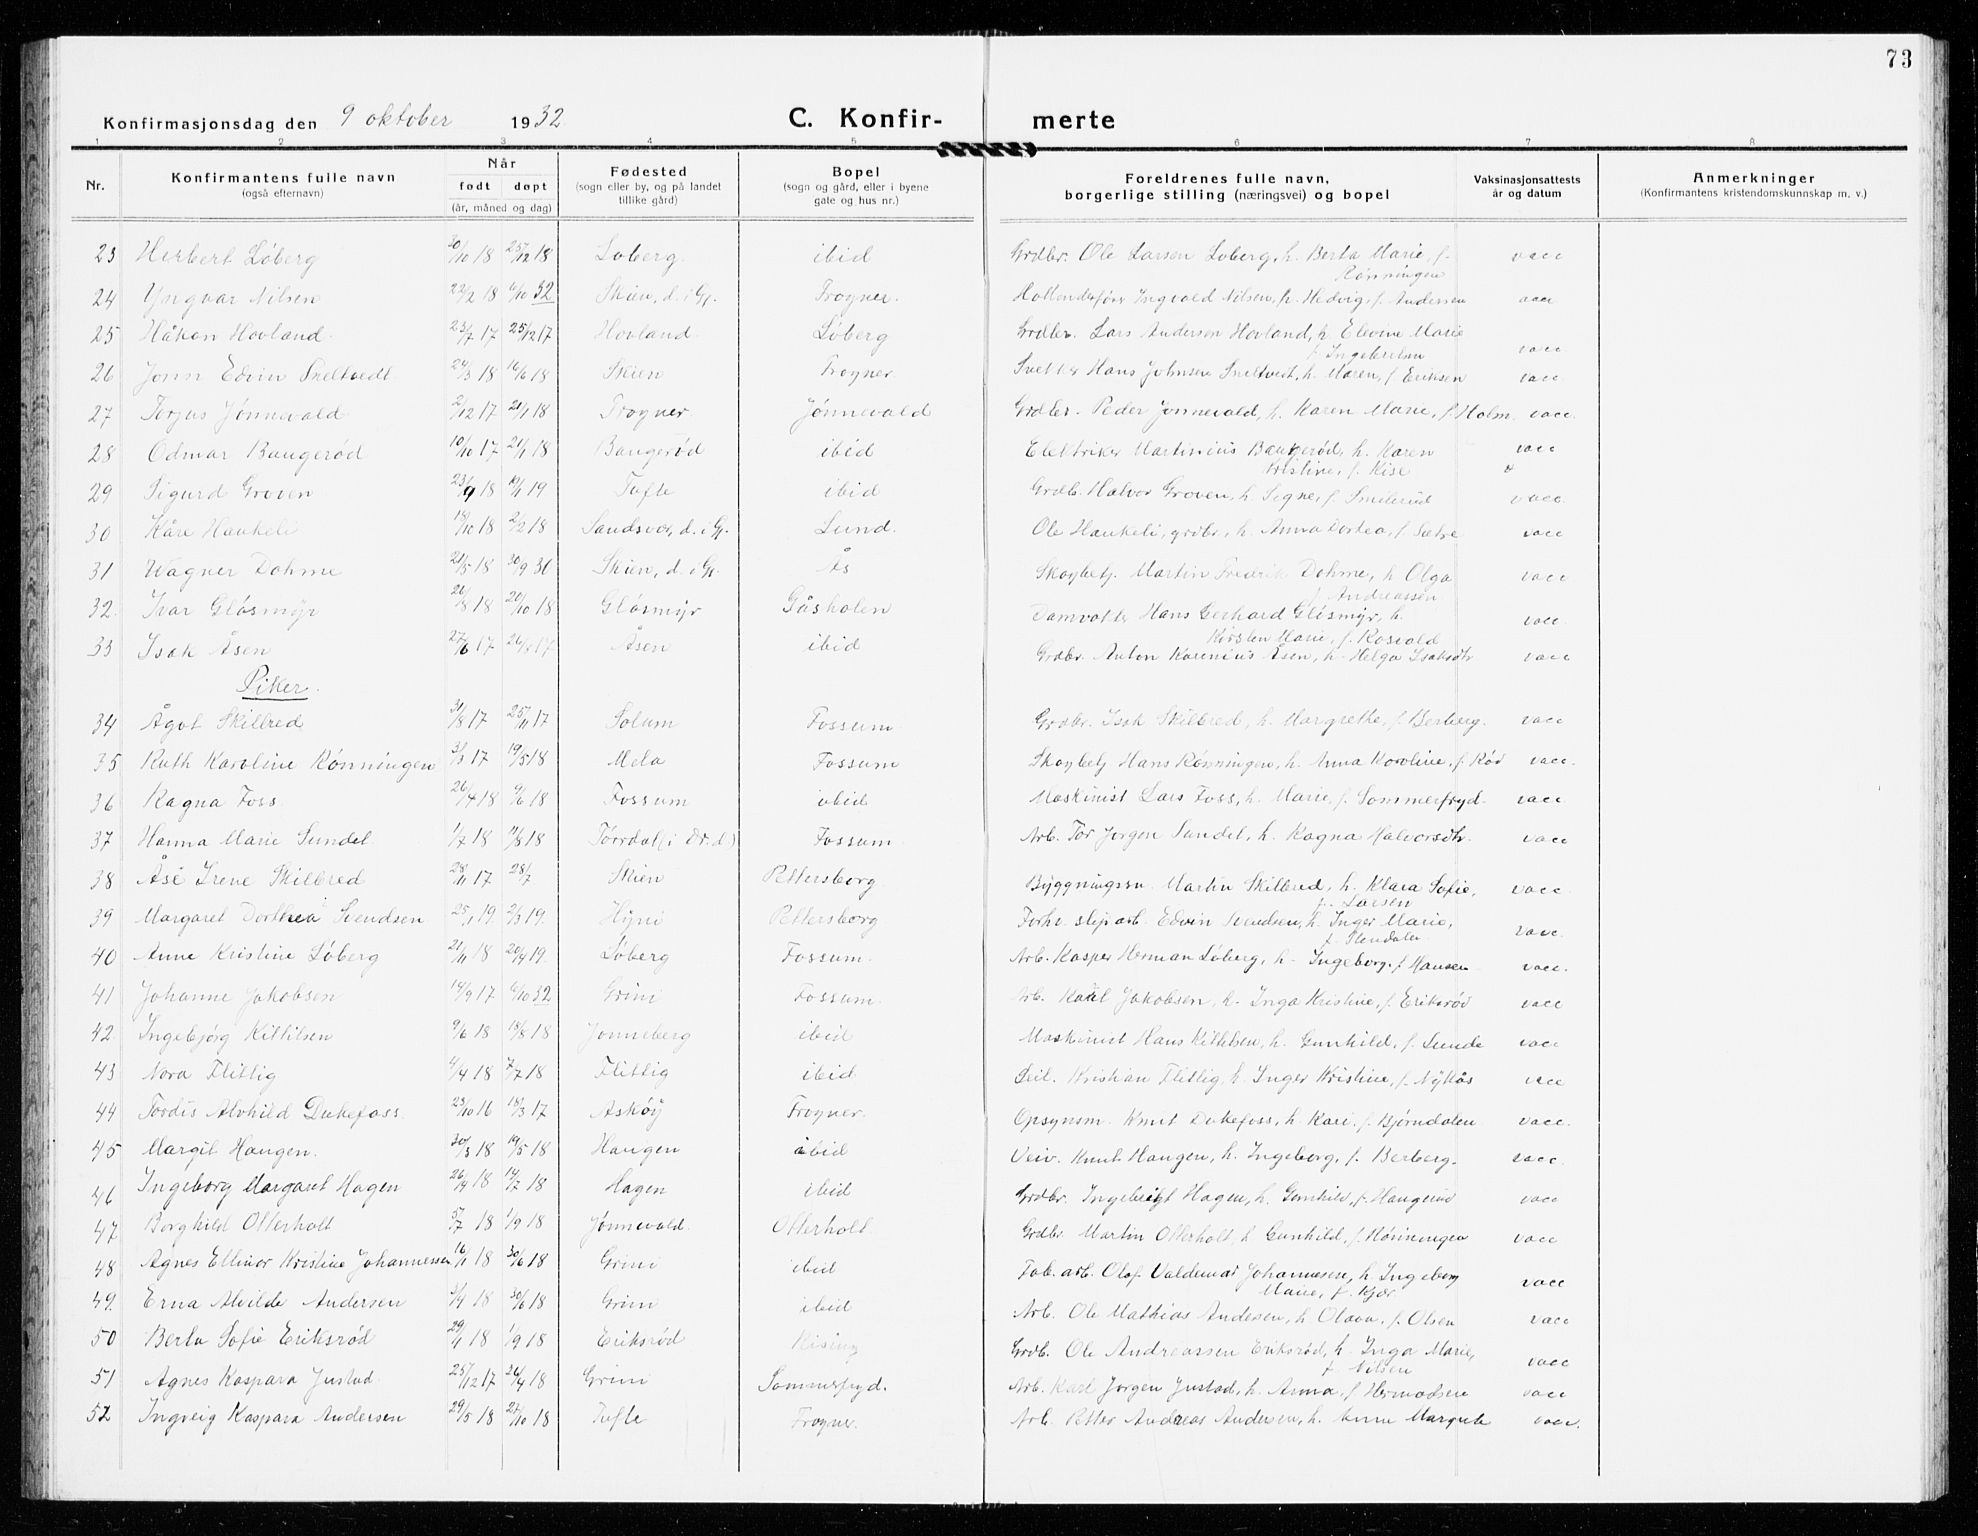 73
Konfirmasjonsdag den 9 oktober 1932 C. Konfir- merte
1 2 3 4 5 6 7 8
Nr. Konfirmantens fulle navn (også efternavn) Når født døpt (år, måned og dag) Fødested (sogn eller by, og på landet tillike gård) Bopel (sogn og gård, eller i byene gate og hus nr.) Foreldrenes fulle navn, borgerlige stilling (næringsvei) og bopel Vaksinasjonsattests år og datum Anmerkninger (Konfirmantens kristendomskunnskap m. v.)
23 Herbert Løberg 30/10 18 25/12 18 Løberg. ibid Grdbr. Ole Larsen Løberg, h. Berta Marie, f. Rønningen vacc
24 Yngvar Nilsen 22/2 18 6/10 32 Skien, d. i Gj. Frogner. Ingvald Nilsen, h. Hedvig, f. Andersen vacc
25 Håkon Hovland. 23/7 17 25/12 17 Hovland. Løberg Grdbr. Lars Andersen Hovland, h. Elevine Marie f. Ingebretsen vacc
26 John Edvin Sneltvedt. 24/3 18 16/6 18 Skien Frogner. Hans Johnsen Sneltvedt, h. Maren, f. Eriksen vacc.
27 Torjus Jønnevald 2/12 17 21/1 18 Frogner Jønnevald Grdbr. Peder Jønnevald, h. Karen Marie, f. Holm. vacc.
28 Odmar Baugerød 10/10 17 21/1 18 Baugerød ibid Elektriker Martinius Baugerød, h. Karen Kristine, f. Kise vacc
29 Sigurd Groven 23/9 18 19/1 19 Tufte ibid Grdb. Halvor Groven, h. Signe, f. Smilerud vacc.
30 Kåre Haukeli 18/10 18 2/2 18 Sandsvær, d. i Gj. Lund. Ole Haukeli, grdbr., h. Anna Dortea, f. Sætre vacc
31 Wagner Dohme 21/5 18 30/9 31 Skien, d. i Gj. Ås Skogbetj. Martin Fredrik Dohme, h. Olga f. Andreassen vacc
32. Ivar Gløsmyr 21/8 18 20/10 18 Gløsmyr Gåsholen Damvokter Hans Gerhard Gløsmyr, h. Kirsten Marie, f. Rosvald vacc.
33 Isak Åsen 27/6 17 26/8 17 Åsen ibid Grdbr. Anton Karenius Åsen, h. Helga Isaksdtr vacc
Piker.
34 Ågot Skilbred 31/8 17 25/11 17 Solum Fossum Grdbr. Isak Skilbred, h. Margrethe, f. Berberg. vacc
35 Ruth Karoline Rønningen 31/3 17 19/5 18 Mela Fossum Skogbetj Hans Rønningen, h. Anna Karoline, f. Rød vacc.
36 Ragna Foss. 26/4 18 9/6 18 Fossum ibid Maskinist Lars Foss, h. Marie, f. Sommerfryd. vacc.
37 Hanna Marie Sundet. 1/7 18 11/8 18 Tørrdal (i Dr.d.) Fossum. Arb. Tor Jørgen Sundet, h. Ragna Halvorsdtr. vacc
38 Åse Irene Skilbred 28/11 17 28/7 Skien Pettersborg. Byggningssn. Martin Skilbred, h. Klara Sofie, f. Larsen vacc.
39 Margaret Dorthea Svendsen 25/1 19 2/3 19. Hyni Pettersborg Forhv. slip.arb. Edvin Svendsen, h. Inger Marie, f. Stendalen vacc.
40 Anne Kristine Løberg 21/11 18 20/4 19. Løberg Fossum. Arb. Kasper Herman Løberg, h. Ingeborg, f. Hansen. vacc.
41 Johanne Jakobsen 14/9 17 6/10 32 Grini Fossum. Arb. Karl Jakobsen, h. Inga Kristine, f. Eriksrød vacc
42. Ingebjørg Kittilsen 9/6 18 18/8 18 Jonneberg ibid Maskinist Hans Kittilsen, h. Gunhild, f. Sunde vacc
43 Nora Flittig 4/4 18 7/7 18 Flittig ibid. Kristian Flittig, h. Inger Kristine, f. Nykås vacc
44 Tordis Alvhild Dukefoss. 23/10 16 18/3 17 Askøy Frogner. Opsynsm. Knut Dukefoss, h. Kari, f. Bjørndalen vacc.
45 Margit Haugen. 30/3 18 19/5 18 Haugen ibid Veiv. Knut Haugen, h. Ingeborg, f. Berberg. vacc.
46 Ingeborg Margaret Hagen 26/4 18 14/7 18 Hagen ibid Grdbr. Ingebrigt Hagen, h. Gunhild, f. Haugerud vacc
47 Borghild Otterholt 5/7 18 1/9 18 Jønnevald. Otterholt Grdbr. Martin Otterholt, h. Gunhild, f. Rønningen vacc
48 Agnes Ellinor Kristine Johannessen 16/1 18 30/6 18 Grini ibid Fab. arb. Olaf Valdemar Johannesen, h. Ingeborg Marie, f. Kjær. vacc
49. Erna Alvilde Andersen 3/4 18 30/6 18 Grini ibid Arb. Ole Mathias Andersen, h. Olava, f. Olsen vacc
50 Berta Sofie Eriksrød 29/1 18 1/9 18 Eriksrød Rising Grdb. Ole Andreassen Eriksrød, h. Inga Marie, f. Nilsen vacc
51 Agnes Kaspara Justad. 25/12 17 Grini Sommerfryd. Arb. Karl Jørgen Justad, h. Anna, f. Hermodsen vacc
52 Ingveig Kaspara Andersen 29/5 18 27/10 18 Tufte Frogner. Arb. Petter Andreas Andersen, h. Anne Margrete vacc.